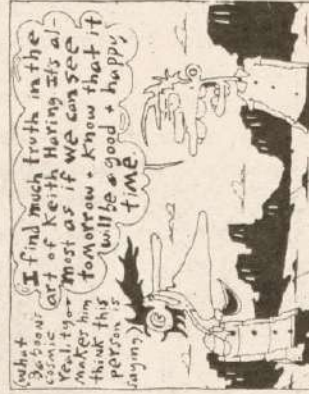 (what
Baboon's
cosmic
reality-o-
maker him
think this
person is
saying)
I find much truth in the
art of Keith Haring It's al-
most as if we can see
tomorrow + know that it
will be a good + happy
time.